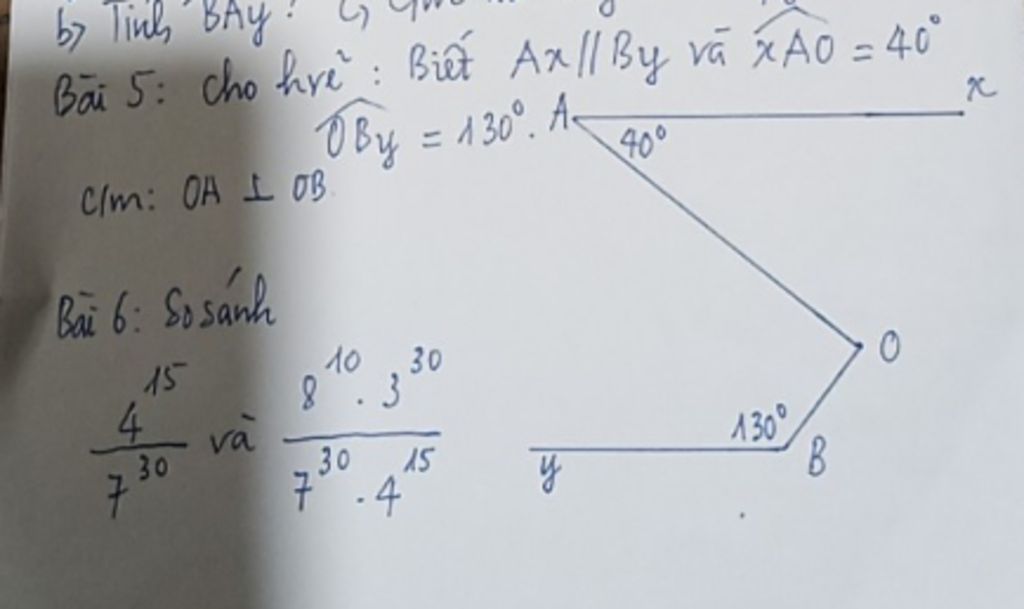 b) Tính BAy ?
Bài 5: Cho hvẽ : Biết Ax // By và xAO = 40°
OBy = 130°.
C/m: OA ⊥ OB
A
x
40°
O
130°
y
B
Bài 6: So sánh
4^15 / 7^30 và 8^10 . 3^30 / 7^30 . 4^15